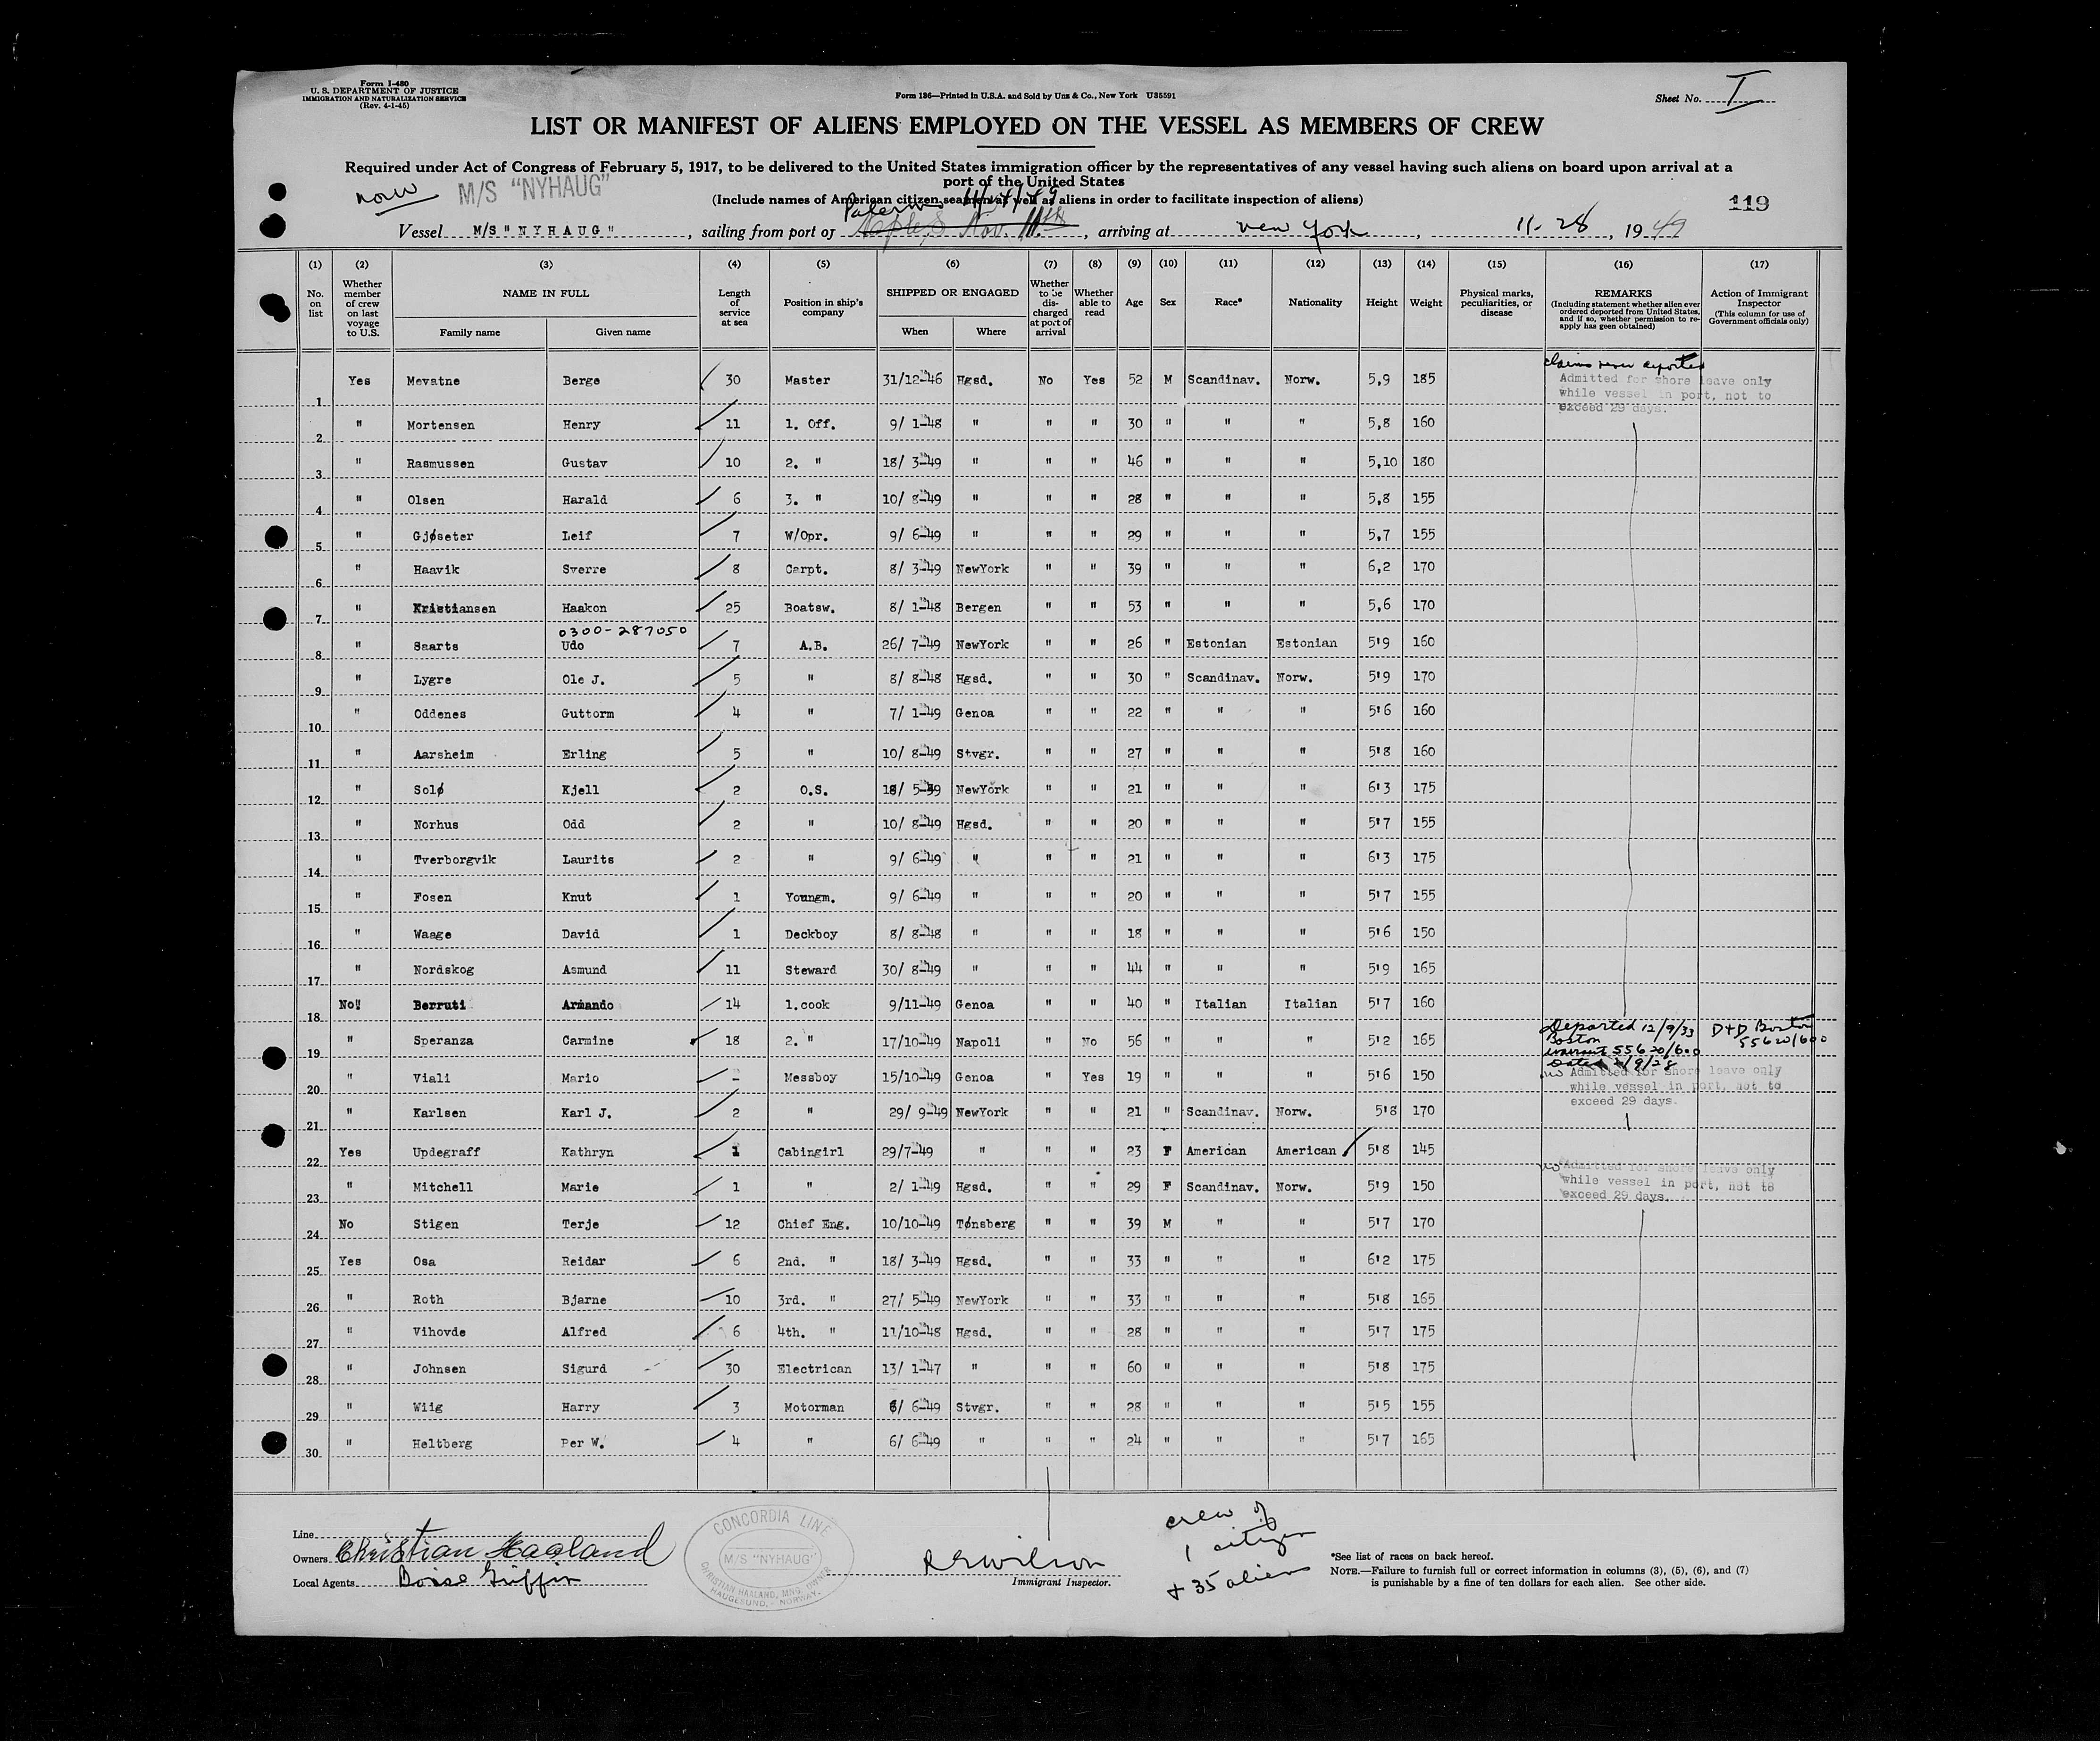 Form I-480
U. S. DEPARTMENT OF JUSTICE
IMMIGRATION AND NATURALIZATION SERVICE
(Rev. 4-1-45)
Form 136—Printed in U.S.A. and Sold by Unz & Co., New York U35591
Sheet No. I
LIST OR MANIFEST OF ALIENS EMPLOYED ON THE VESSEL AS MEMBERS OF CREW
Required under Act of Congress of February 5, 1917, to be delivered to the United States immigration officer by the representatives of any vessel having such aliens on board upon arrival at a
port of the United States
now M/S "NYHAUG"
(Include names of American citizen seamen as well as aliens in order to facilitate inspection of aliens)
119
Palermo
Vessel M/S "NYHAUG", sailing from port of Naples Nov. 11th, arriving at new york, 11-28, 1949
(1) (2) (3) (4) (5) (6) (7) (8) (9) (10) (11) (12) (13) (14) (15) (16) (17)
No. on list
Whether member of crew on last voyage to U.S.
NAME IN FULL
Family name Given name
Length of service at sea
Position in ship's company
SHIPPED OR ENGAGED
When Where
Whether to be discharged at port of arrival
Whether able to read
Age
Sex
Race*
Nationality
Height
Weight
Physical marks, peculiarities, or disease
REMARKS
(Including statement whether alien ever ordered deported from United States, and if so, whether permission to re-apply has geen obtained)
Action of Immigrant Inspector
(This column for use of Government officials only)
1 Yes Mevatne Berge 30 Master 31/12-46 Hgsd. No Yes 52 M Scandinav. Norw. 5,9 185
Admitted for shore leave only
while vessel in port, not to
exceed 29 days.
2 " Mortensen Henry 11 1. Off. 9/ 1-48 " " " 30 " " " 5,8 160
3 " Rasmussen Gustav 10 2. " 18/ 3-49 " " " 46 " " " 5,10 180
4 " Olsen Harald 6 3. " 10/ 8-49 " " " 28 " " " 5,8 155
5 " Gjøseter Leif 7 W/Opr. 9/ 6-49 " " " 29 " " " 5,7 155
6 " Haavik Sverre 8 Carpt. 8/ 3-49 NewYork " " 39 " " " 6,2 170
7 " Kristiansen Haakon 25 Boatsw. 8/ 1-48 Bergen " " 53 " " " 5,6 170
0300-287050
8 " Saarts Udo 7 A.B. 26/ 7-49 NewYork " " 26 " Estonian Estonian 5'9 160
9 " Lygre Ole J. 5 " 8/ 8-48 Hgsd. " " 30 " Scandinav. Norw. 5'9 170
10 " Oddenes Guttorm 4 " 7/ 1-49 Genoa " " 22 " " " 5'6 160
11 " Aarsheim Erling 5 " 10/ 8-49 Stvgr. " " 27 " " " 5'8 160
12 " Solø Kjell 2 O.S. 18/ 5-49 NewYork " " 21 " " " 6'3 175
13 " Norhus Odd 2 " 10/ 8-49 Hgsd. " " 20 " " " 5'7 155
14 " Tverborgvik Laurits 2 " 9/ 6-49 " " " 21 " " " 6'3 175
15 " Fosen Knut 1 Youngm. 9/ 6-49 " " " 20 " " " 5'7 155
16 " Waage David 1 Deckboy 8/ 8-48 " " " 18 " " " 5'6 150
17 " Nordskog Asmund 11 Steward 30/ 8-49 " " " 44 " " " 5'9 165
18 No Berruti Armando 14 1.cook 9/11-49 Genoa " " 40 " Italian Italian 5'7 160
19 " Speranza Carmine 18 2. " 17/10-49 Napoli " No 56 " " " 5'2 165 Deported 12/9/33 Boston
warrant 55620/600
D+D Boston
55620/600
20 " Viali Mario - Messboy 15/10-49 Genoa " Yes 19 " " " 5'6 150
Admitted for shore leave only
while vessel in port, not to
exceed 29 days.
21 " Karlsen Karl J. 2 " 29/ 9-49 NewYork " " 21 " Scandinav. Norw. 5'8 170
22 Yes Updegraff Kathryn 1 Cabingirl 29/7-49 " " " 23 F American American 5'8 145
Admitted for shore leave only
while vessel in port, not to
exceed 29 days.
23 " Mitchell Marie 1 " 2/ 1-49 Hgsd. " " 29 F Scandinav. Norw. 5'9 150
24 No Stigen Terje 12 Chief Eng. 10/10-49 Tønsberg " " 39 M " " 5'7 170
25 Yes Osa Reidar 6 2nd. " 18/ 3-49 Hgsd. " " 33 " " " 6'2 175
26 " Roth Bjarne 10 3rd. " 27/ 5-49 NewYork " " 33 " " " 5'8 165
27 " Vihovde Alfred 6 4th. " 11/10-48 Hgsd. " " 28 " " " 5'7 175
28 " Johnsen Sigurd 30 Electrican 13/ 1-47 " " " 60 " " " 5'8 175
29 " Wiig Harry 3 Motorman 6/ 6-49 Stvgr. " " 28 " " " 5'5 155
30 " Heltberg Per W. 4 " 6/ 6-49 " " " 24 " " " 5'7 165
Line
Owners Christian Haaland
Local Agents Boise Griffin
CONCORDIA LINE
M/S "NYHAUG"
CHRISTIAN HAALAND, MNG. OWNER
HAUGESUND, - NORWAY.
R E Wilson
Immigrant Inspector.
crew of
1 citizen
+ 35 aliens
*See list of races on back hereof.
NOTE.—Failure to furnish full or correct information in columns (3), (5), (6), and (7)
is punishable by a fine of ten dollars for each alien. See other side.